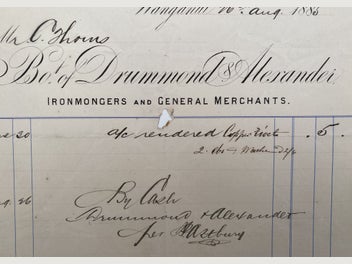 Wanganui 26th Aug. 1883
Mr C. Thoms
Bot. of Drummond & Alexander
IRONMONGERS AND GENERAL MERCHANTS.
20 a/c rendered Copper Rivets . 5 .
2 lbs
26 By Cash
Drummond & Alexander
per